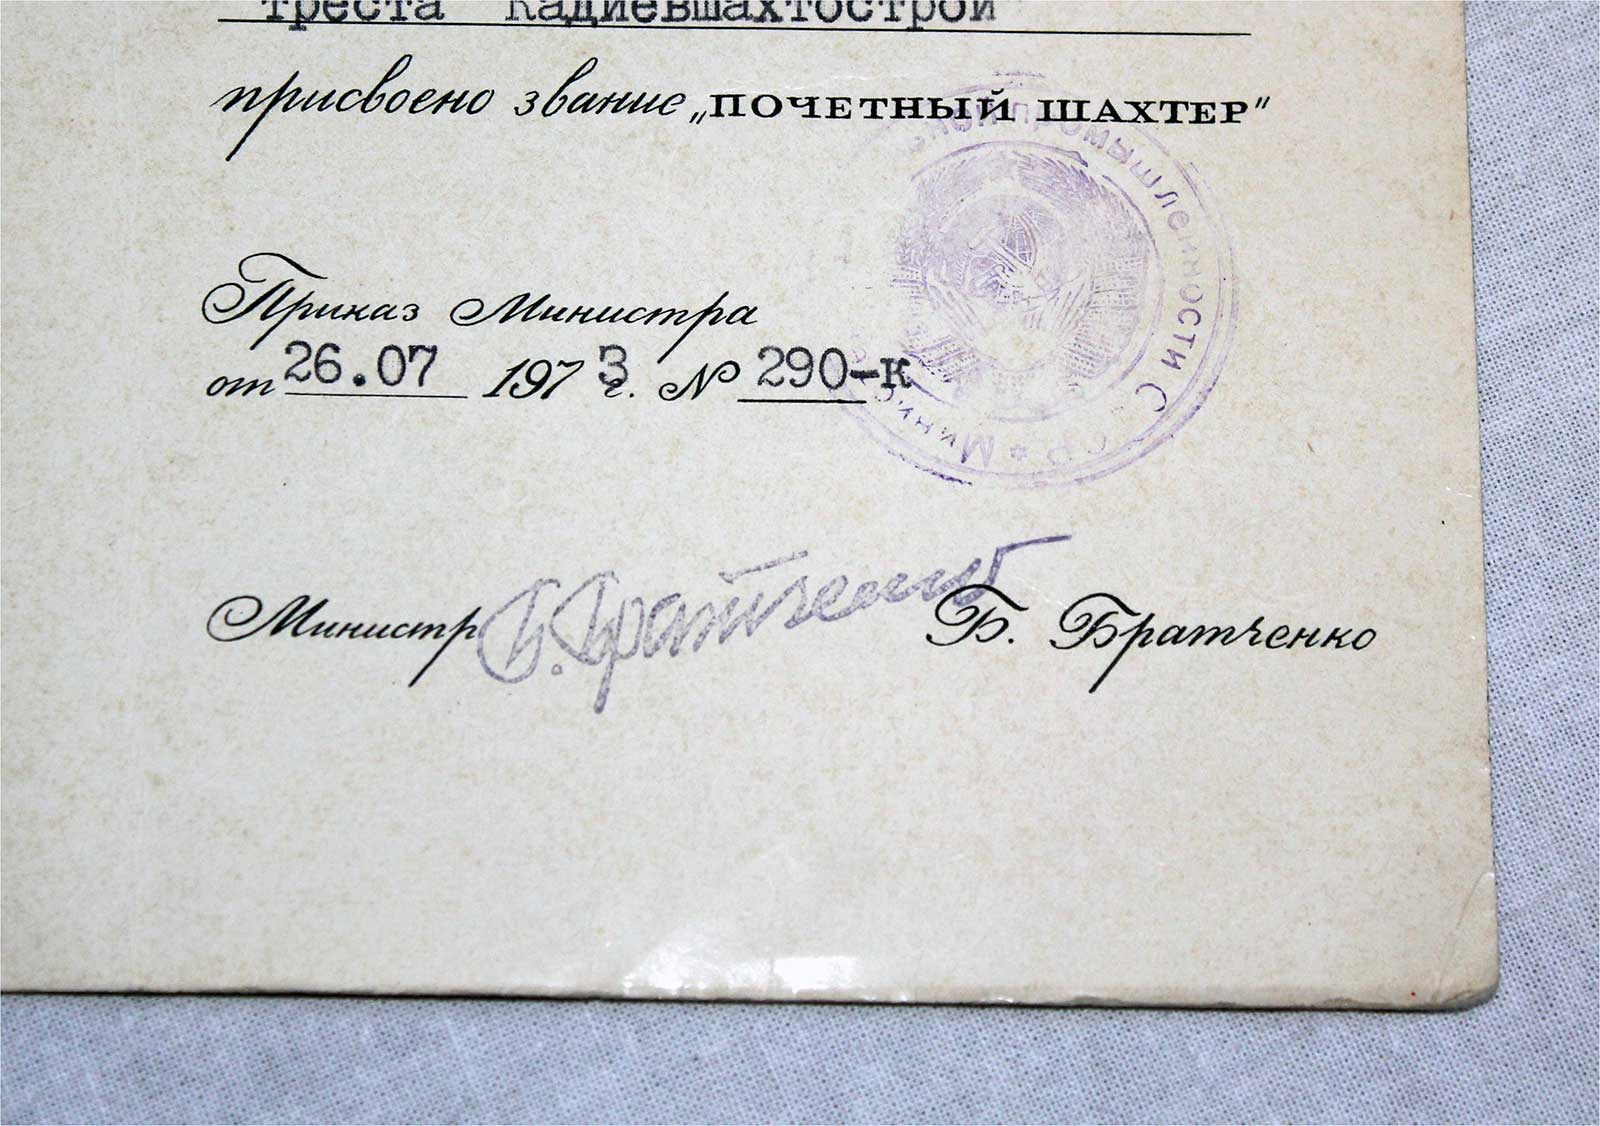 треста Кадиевшахтострой
присвоено звание „ПОЧЕТНЫЙ ШАХТЕР"
Приказ Министра
от 26.07 1973 г. № 290-к
Министр Б. Братченко Б. Братченко
ПРОМЫШЛЕННОСТИ СССР * МИНИС